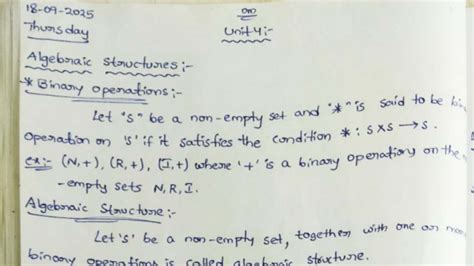 18-09-2025
Thursday
Unit 4:-
Algebraic Structures:-
* Binary operations:-
Let "S" be a non-empty set and "*" is said to be bin
operation on 'S' if it satisfies the condition * : S×S → S.
ex:- (N,+), (R,+), (I,+) where '+' is a binary operation on the
-empty sets N, R, I.
Algebraic Structure:-
Let 'S' be a non-empty set, together with one or mo
binary operations is called algebraic structure.